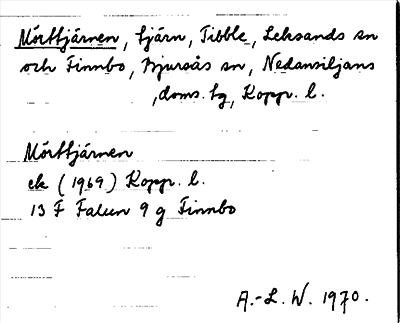 Mörttjärnen, tjärn, Tibble, Leksands sn
och Finnbo, Bjursås sn, Nedansiljans
, doms. tg, Kopp. l.
Mörttjärnen
ek (1969) Kopp. l.
13 F Falun 9 g Finnbo
A.-L. W. 1970.